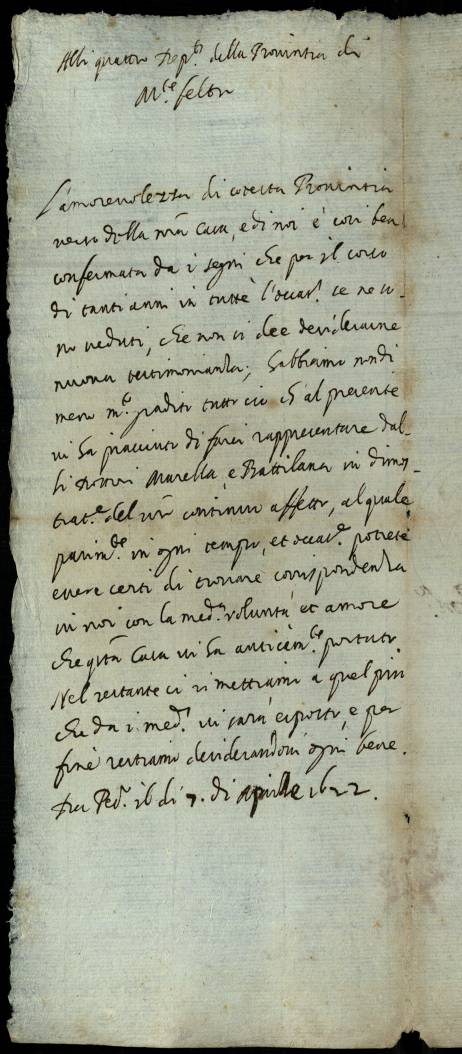 Alli quattro Dep.ti della Provintia di
M.te feltro
L'amorevolezza di cotesta Provintia
verso della n͞ra Casa, e di noi è così ben
confermata da i segni che per il corso
di tanti anni in tutte l'occas.i se ne so-
no veduti, che non si dee desiderarne
nuova testimonianza; habbiamo nondi
meno m.to gradito tutto ciò ch'al presente
vi ha piaciuto di farci rappresentare dal-
li Dottori Marella, e Battilana in dimos-
trat.e del v͞ro continuo affetto, al quale
parim.te in ogni tempo, et occas.e potrete
essere certi di trovare corrispondenza
in noi con la med.a volontà et amore
che q͞sta Casa vi ha anticam.te portato
Nel restante ci rimettiamo a quel più
che da i med.i vi sarà esposto, e per
fine restiamo desiderandovi ogni bene.
Di 7. di Aprile 1622.